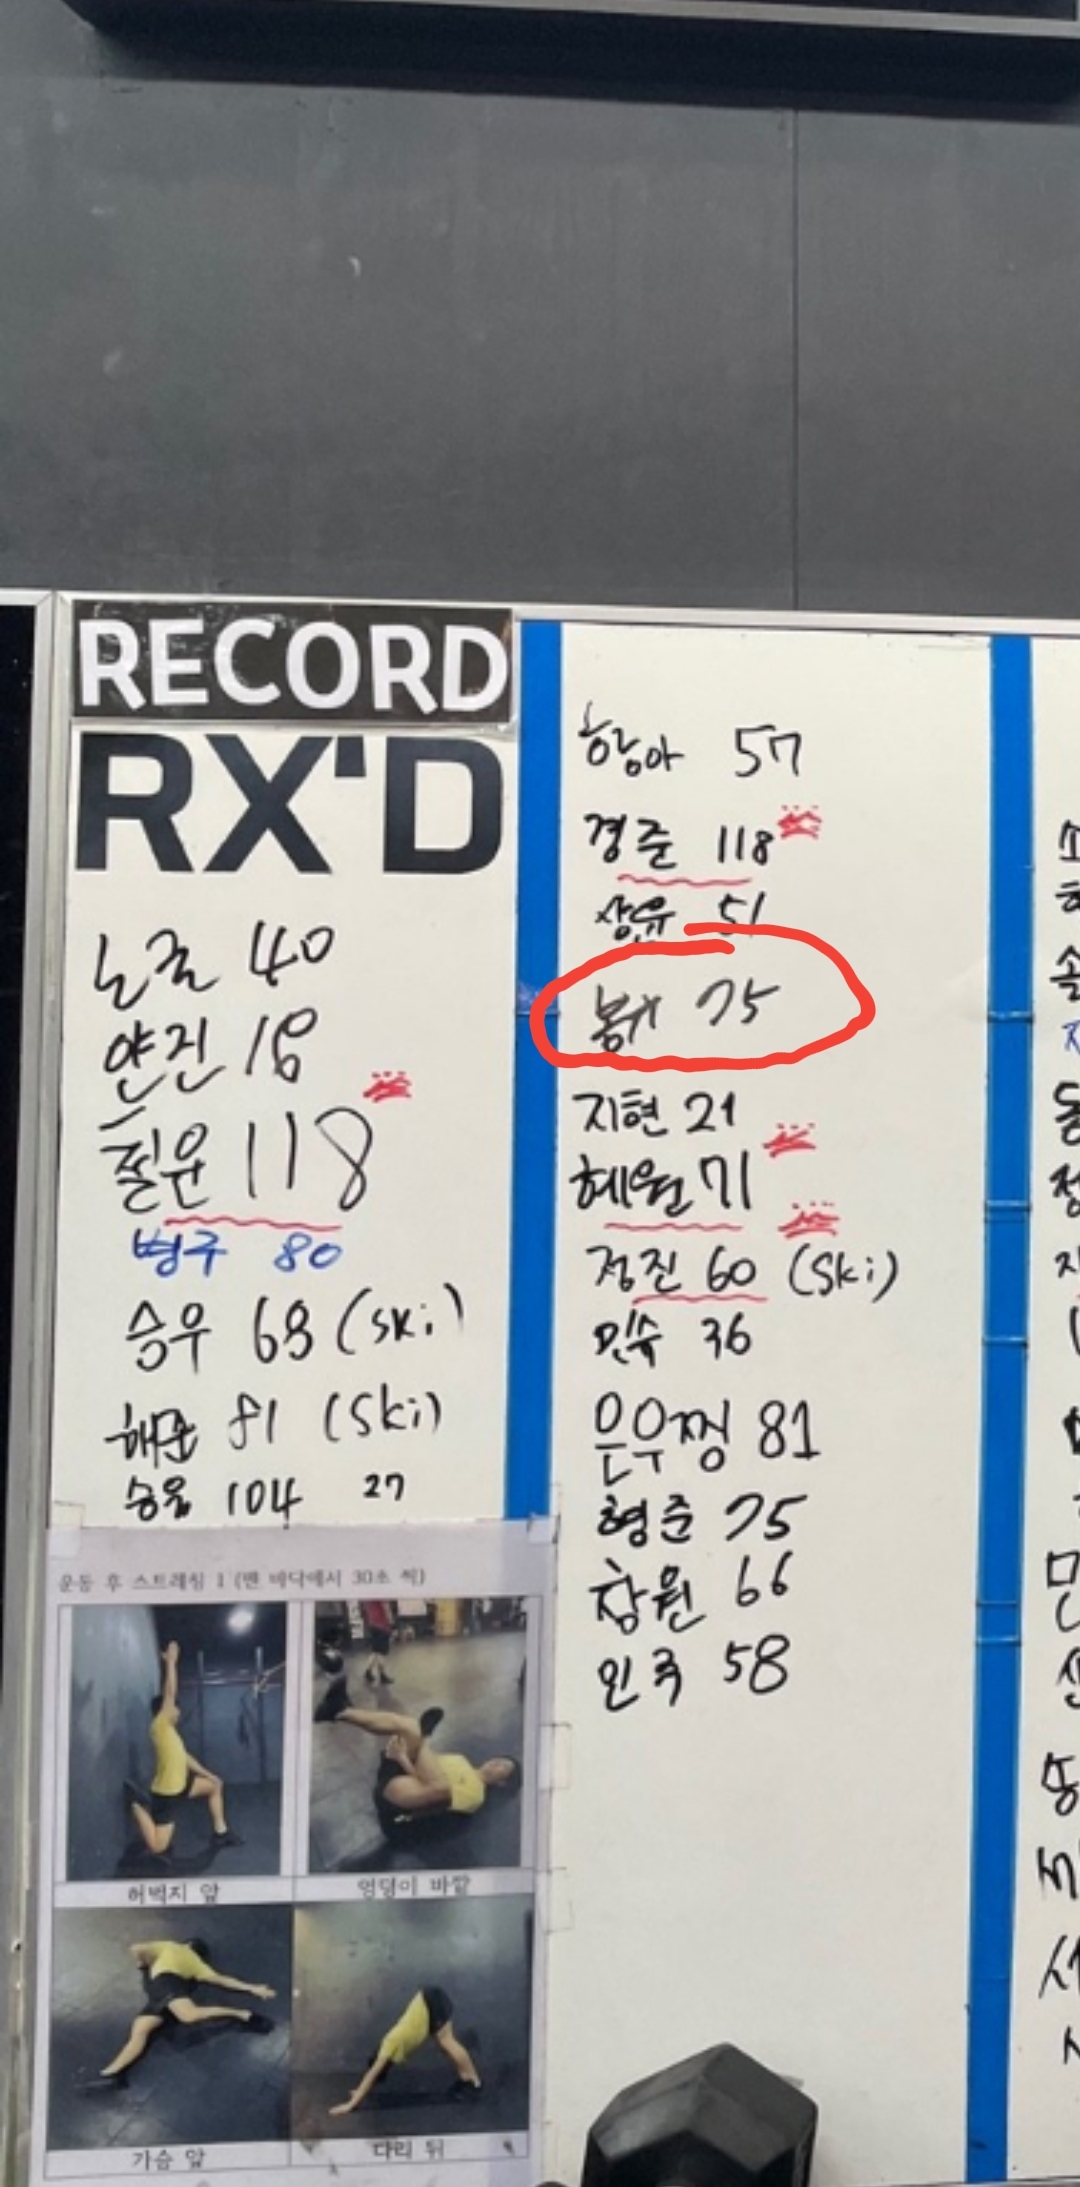 RECORD
RX'D
노균 40
얀진 18
필운 118
병규 80
승우 68 (ski)
해균 81 (Ski)
승윤 104 27
운동 후 스트레칭 1 (맨 바닥에서 30초 씩)
허벅지 앞
엉덩이 바깥
가슴 앞
다리 뒤
항아 57
경준 118
상유 51
75
지현 21
혜원 71
정진 60 (Ski)
민숙 36
은우찡 81
형준 75
창원 66
인국 58